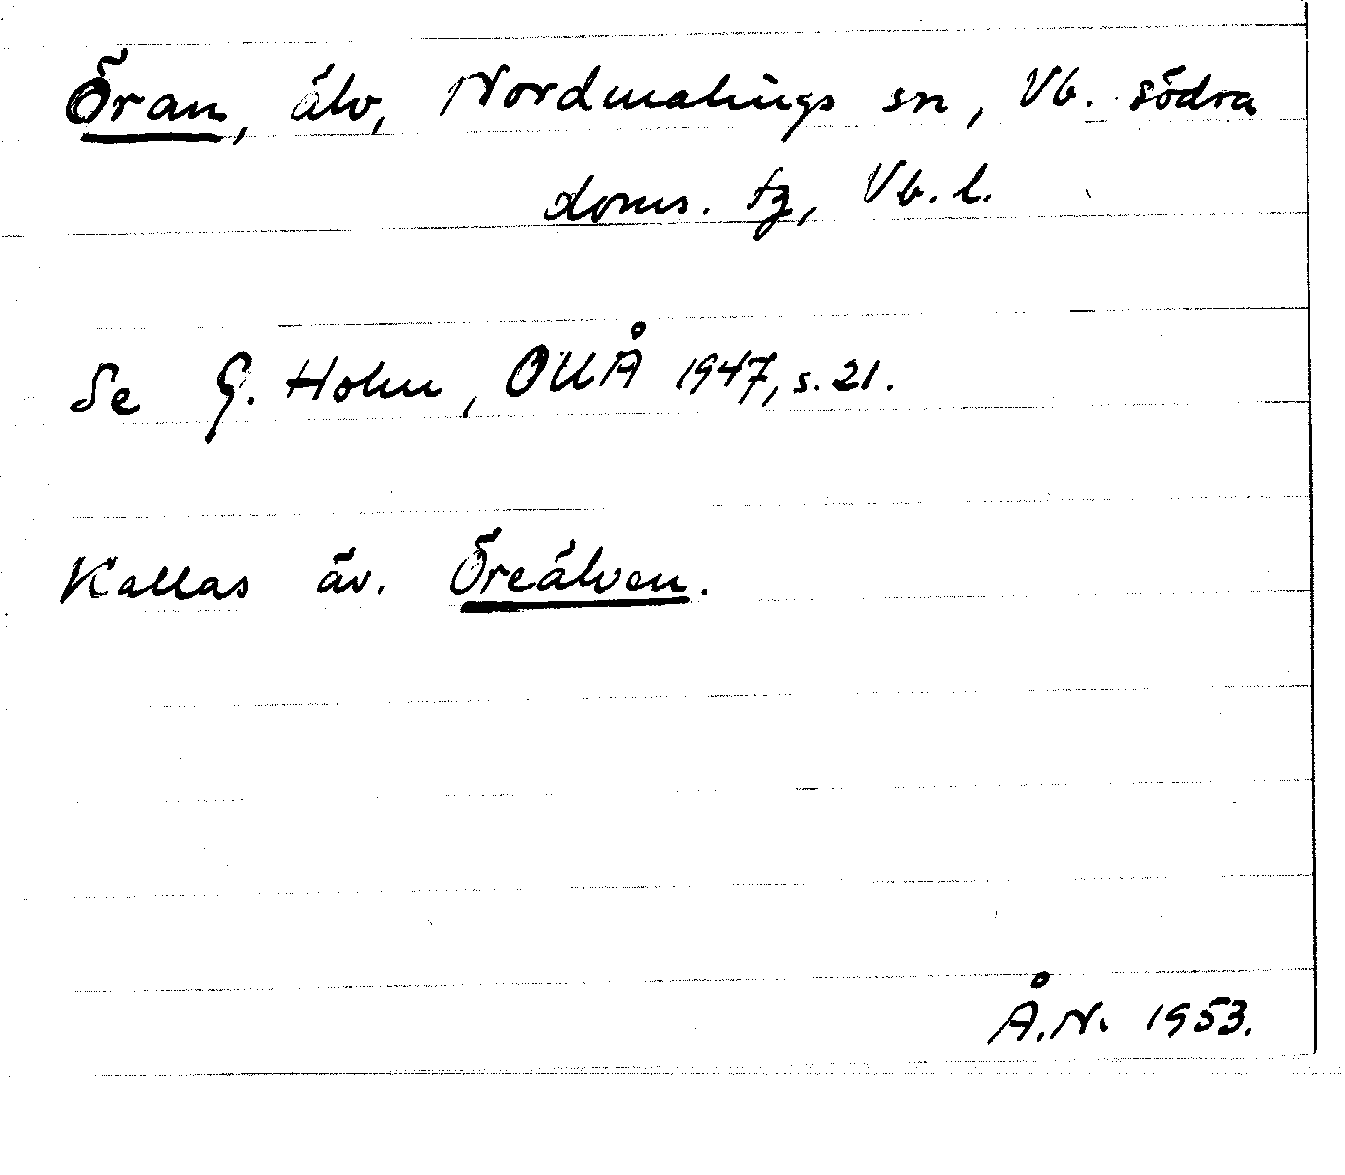 Öran, älv, Nordmalings sn, Vb. södra
doms. tg, Vb. l.
Se G. Holm, OUÅ 1947, s. 21.
Kallas äv. Öreälven.
Å.N. 1953.